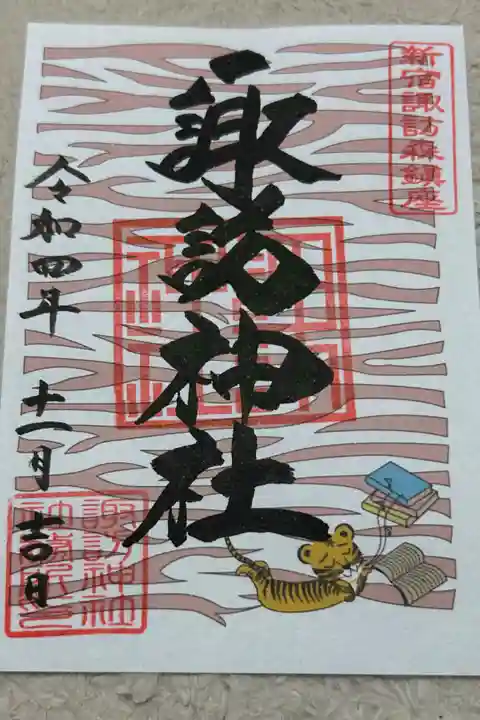 新宿諏訪森鎮座
諏訪神社
令和四年 十一月 吉日
諏訪神社